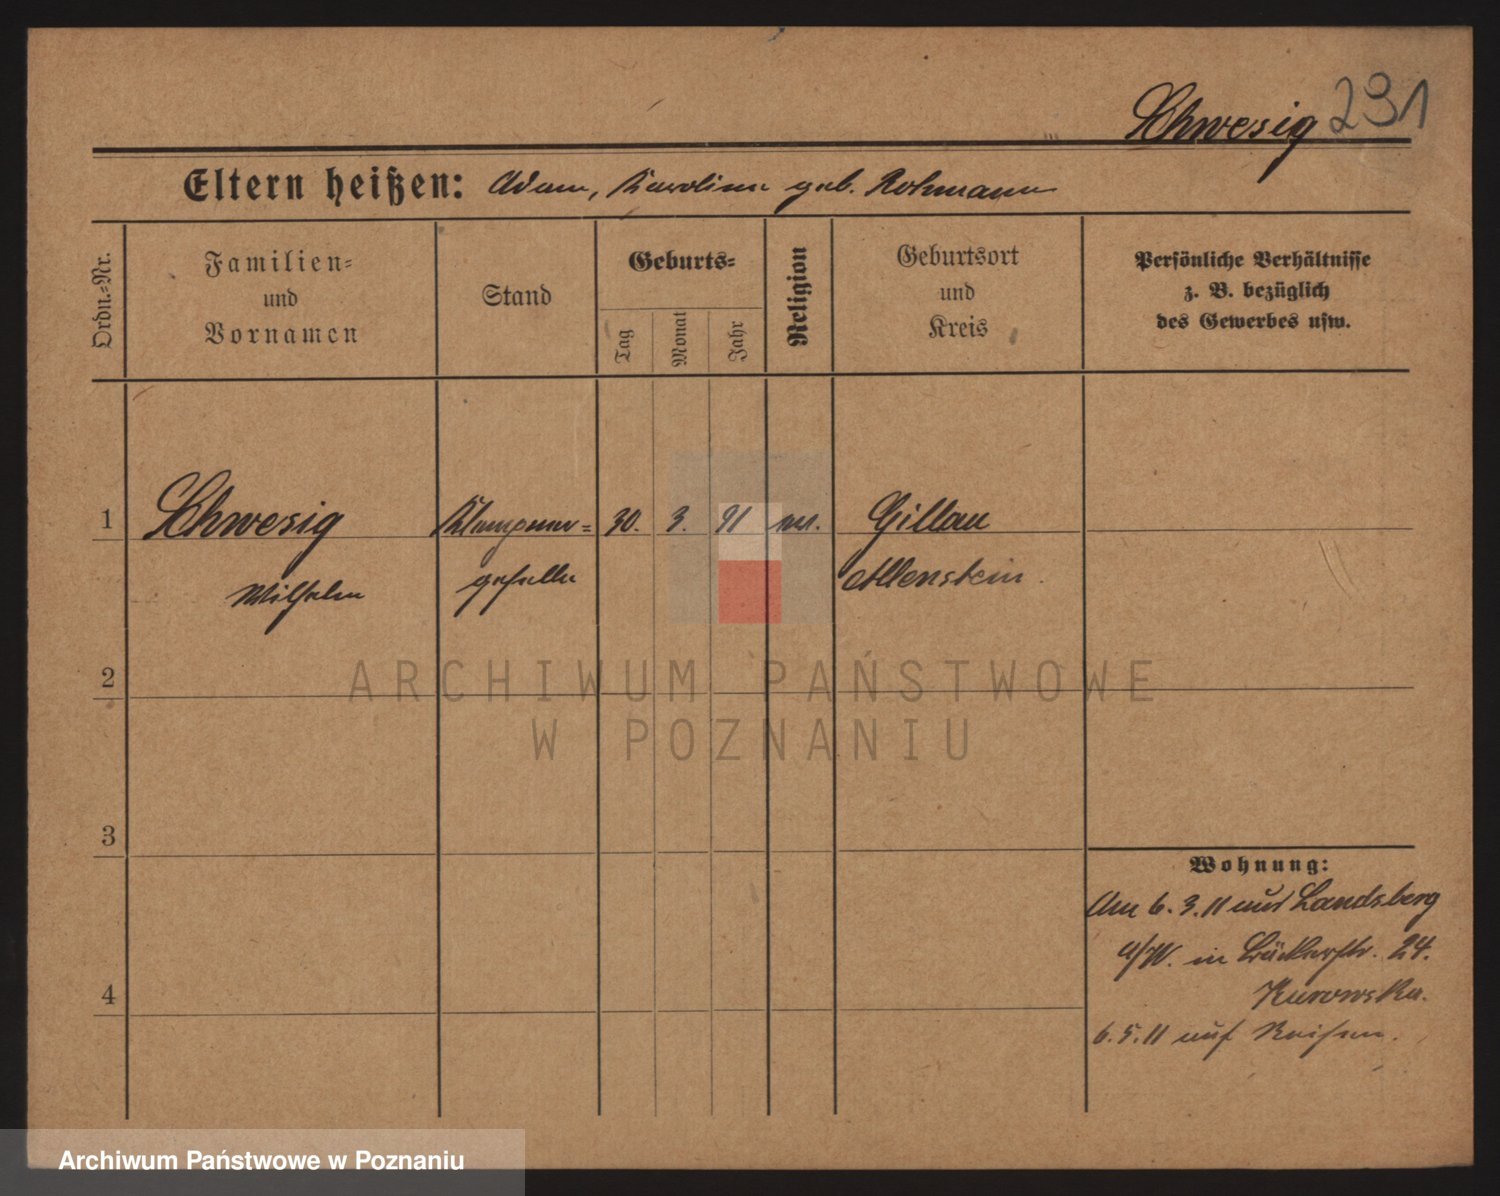 Schwesig 291
Eltern heißen: Adam, Karoline geb. Rohmann
Ordn.=Nr.
Familien=
und
Vornamen
Stand
Geburts=
Tag
Monat
Jahr
Religion
Geburtsort
und
Kreis
Persönliche Verhältnisse
z. B. bezüglich
des Gewerbes usw.
1 Schwesig Klempner= 30. 3. 91 ev. Gillau
Wilhelm geselle Allenstein.
2
ARCHIWUM PAŃSTWOWE
W POZNANIU
3
Wohnung:
Am 6.3.11 aus Landsberg
a/W. in Bäckerstr. 24.
Kurowska.
4
6.5.11 auf Reisen.
Archiwum Państwowe w Poznaniu